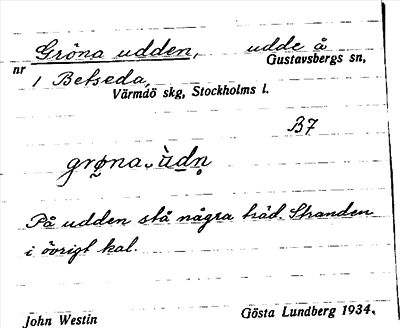 Gröna udden, udde å
nr Gustavsbergs sn,
1 Betseda,
Värmdö skg, Stockholms l.
B7
grø̰na ùdn̥
På udden stå några träd. Stranden
i övrigt kal.
John Westin Gösta Lundberg 1934.